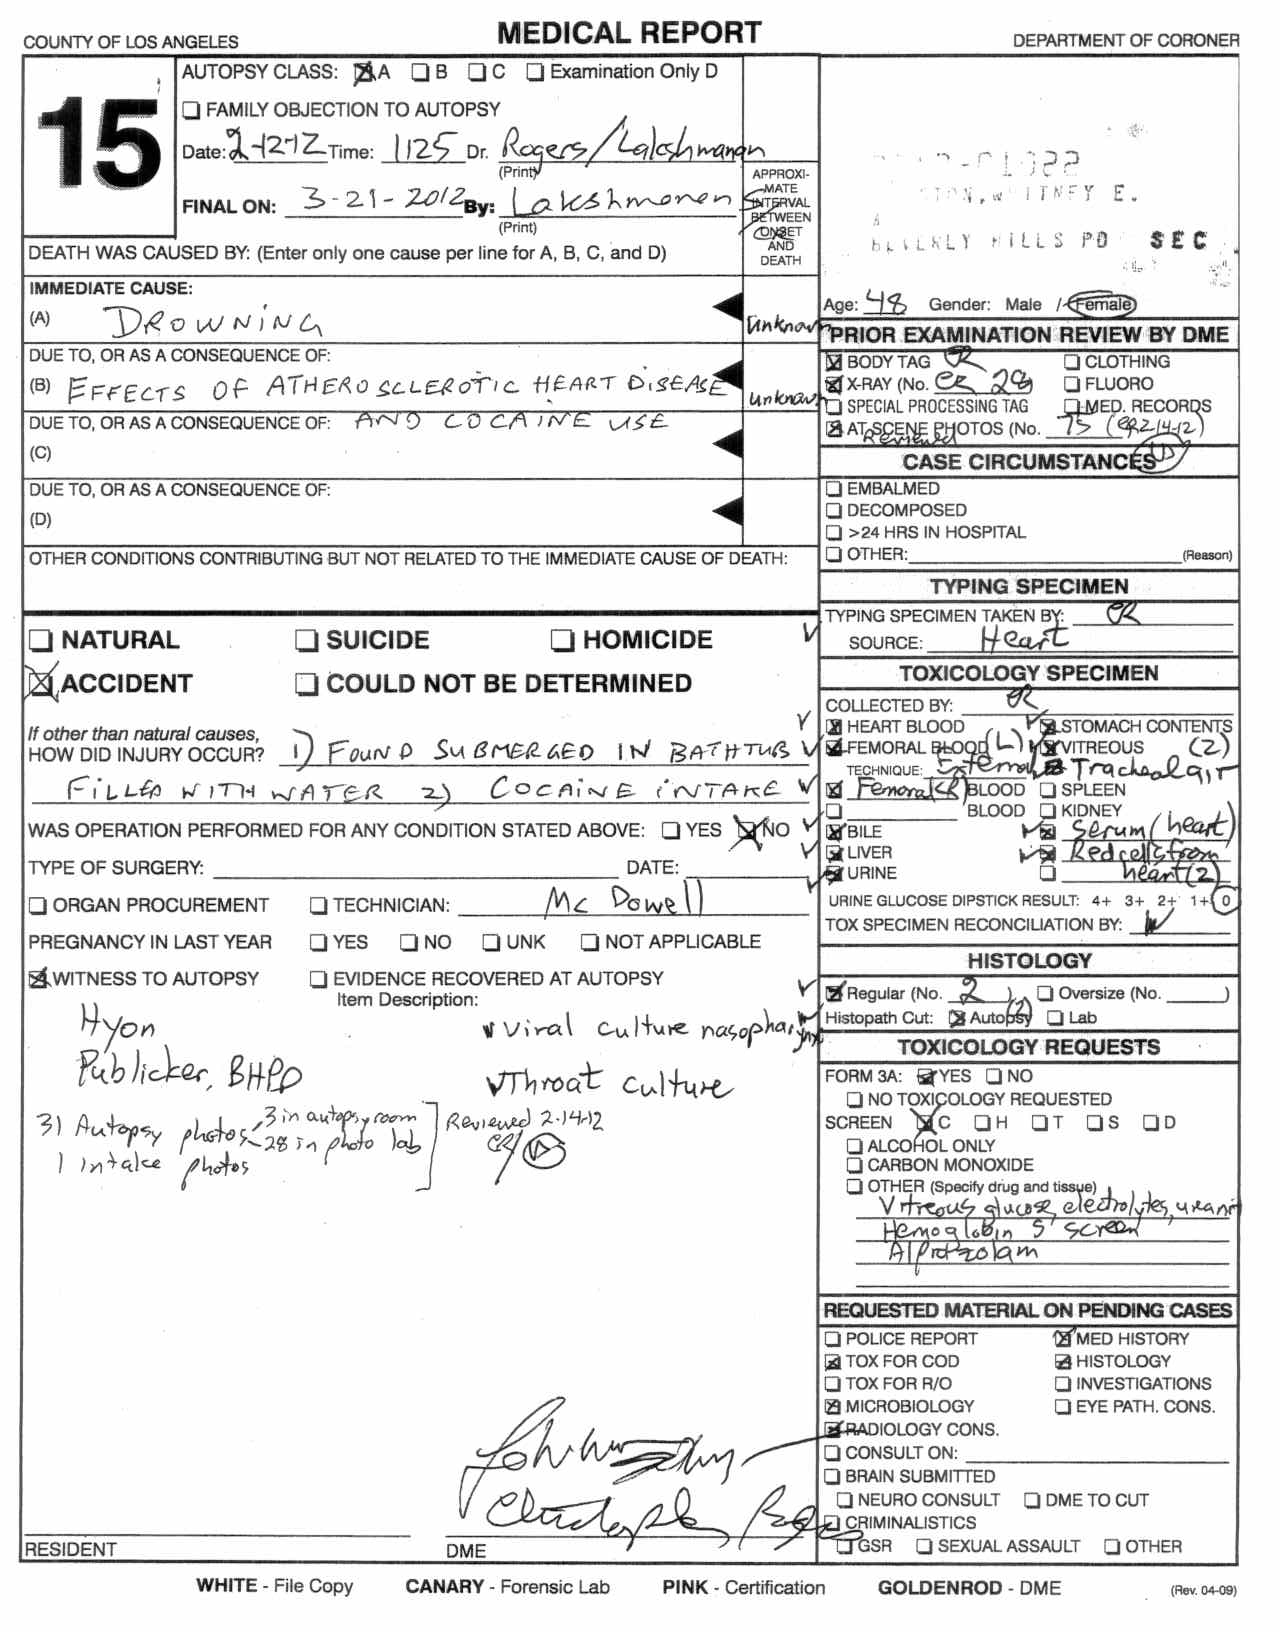 COUNTY OF LOS ANGELES
MEDICAL REPORT
DEPARTMENT OF CORONER
15
AUTOPSY CLASS: A B C Examination Only D
FAMILY OBJECTION TO AUTOPSY
Date: 2-12-12 Time: 1125 Dr. Rogers/Lakshmanan
(Print)
FINAL ON: 3-21-2012 By: Lakshmanan
(Print)
APPROXI-
MATE
INTERVAL
BETWEEN
ONSET
AND
DEATH
WHITNEY E.
BEVERLY HILLS PD SEC
Age: 48 Gender: Male / Female
DEATH WAS CAUSED BY: (Enter only one cause per line for A, B, C, and D)
IMMEDIATE CAUSE:
(A) DROWNING Unknown
DUE TO, OR AS A CONSEQUENCE OF:
(B) EFFECTS OF ATHEROSCLEROTIC HEART DISEASE unknown
DUE TO, OR AS A CONSEQUENCE OF: AND COCAINE USE
(C)
DUE TO, OR AS A CONSEQUENCE OF:
(D)
OTHER CONDITIONS CONTRIBUTING BUT NOT RELATED TO THE IMMEDIATE CAUSE OF DEATH:
NATURAL SUICIDE HOMICIDE
ACCIDENT COULD NOT BE DETERMINED
If other than natural causes,
HOW DID INJURY OCCUR? 1) FOUND SUBMERGED IN BATHTUB
FILLED WITH WATER 2) COCAINE INTAKE
WAS OPERATION PERFORMED FOR ANY CONDITION STATED ABOVE: YES NO
TYPE OF SURGERY: DATE:
ORGAN PROCUREMENT TECHNICIAN: Mc Dowell
PREGNANCY IN LAST YEAR YES NO UNK NOT APPLICABLE
WITNESS TO AUTOPSY EVIDENCE RECOVERED AT AUTOPSY
Item Description:
Hyon
Publicker, BHPD
Viral culture nasopharynx
Throat culture
31 Autopsy photos 3 in autopsy room
28 in photo lab
1 intake photos
Reviewed 2-14-12
CR
RESIDENT
DME
PRIOR EXAMINATION REVIEW BY DME
BODY TAG CR CLOTHING
X-RAY (No. CR 28) FLUORO
SPECIAL PROCESSING TAG MED. RECORDS
AT SCENE PHOTOS (No. 75 (CR 2-14-12)
Reviewed
CASE CIRCUMSTANCES
EMBALMED
DECOMPOSED
>24 HRS IN HOSPITAL
OTHER: (Reason)
TYPING SPECIMEN
TYPING SPECIMEN TAKEN BY: CR
SOURCE: Heart
TOXICOLOGY SPECIMEN
COLLECTED BY: CR
HEART BLOOD STOMACH CONTENTS
FEMORAL BLOOD (L) VITREOUS (2)
TECHNIQUE: External Tracheal air
Femoral (R) BLOOD SPLEEN
BLOOD KIDNEY
BILE Serum (heart)
LIVER Red cells from
URINE heart (2)
URINE GLUCOSE DIPSTICK RESULT: 4+ 3+ 2+ 1+ 0
TOX SPECIMEN RECONCILIATION BY:
HISTOLOGY
Regular (No. 2 ) Oversize (No. )
Histopath Cut: Autopsy (2) Lab
TOXICOLOGY REQUESTS
FORM 3A: YES NO
NO TOXICOLOGY REQUESTED
SCREEN C H T S D
ALCOHOL ONLY
CARBON MONOXIDE
OTHER (Specify drug and tissue)
Vitreous glucose, electrolytes, urea nit
Hemoglobin S screen
Alprazolam
REQUESTED MATERIAL ON PENDING CASES
POLICE REPORT MED HISTORY
TOX FOR COD HISTOLOGY
TOX FOR R/O INVESTIGATIONS
MICROBIOLOGY EYE PATH. CONS.
RADIOLOGY CONS.
CONSULT ON:
BRAIN SUBMITTED
NEURO CONSULT DME TO CUT
CRIMINALISTICS
GSR SEXUAL ASSAULT OTHER
WHITE - File Copy CANARY - Forensic Lab PINK - Certification GOLDENROD - DME (Rev. 04-09)